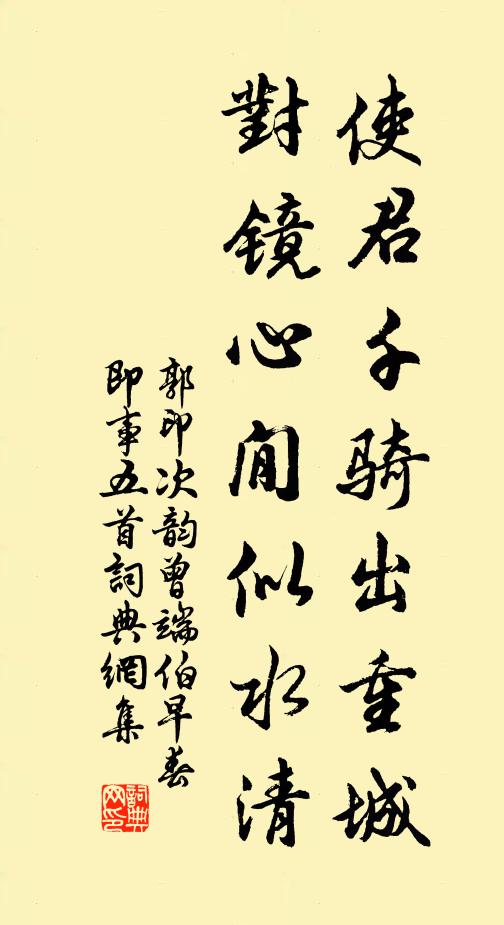 使君千骑出重城
對镜心闲似水清
郭印次韵曾端伯早春
即事五首詞典網集
詞典网印